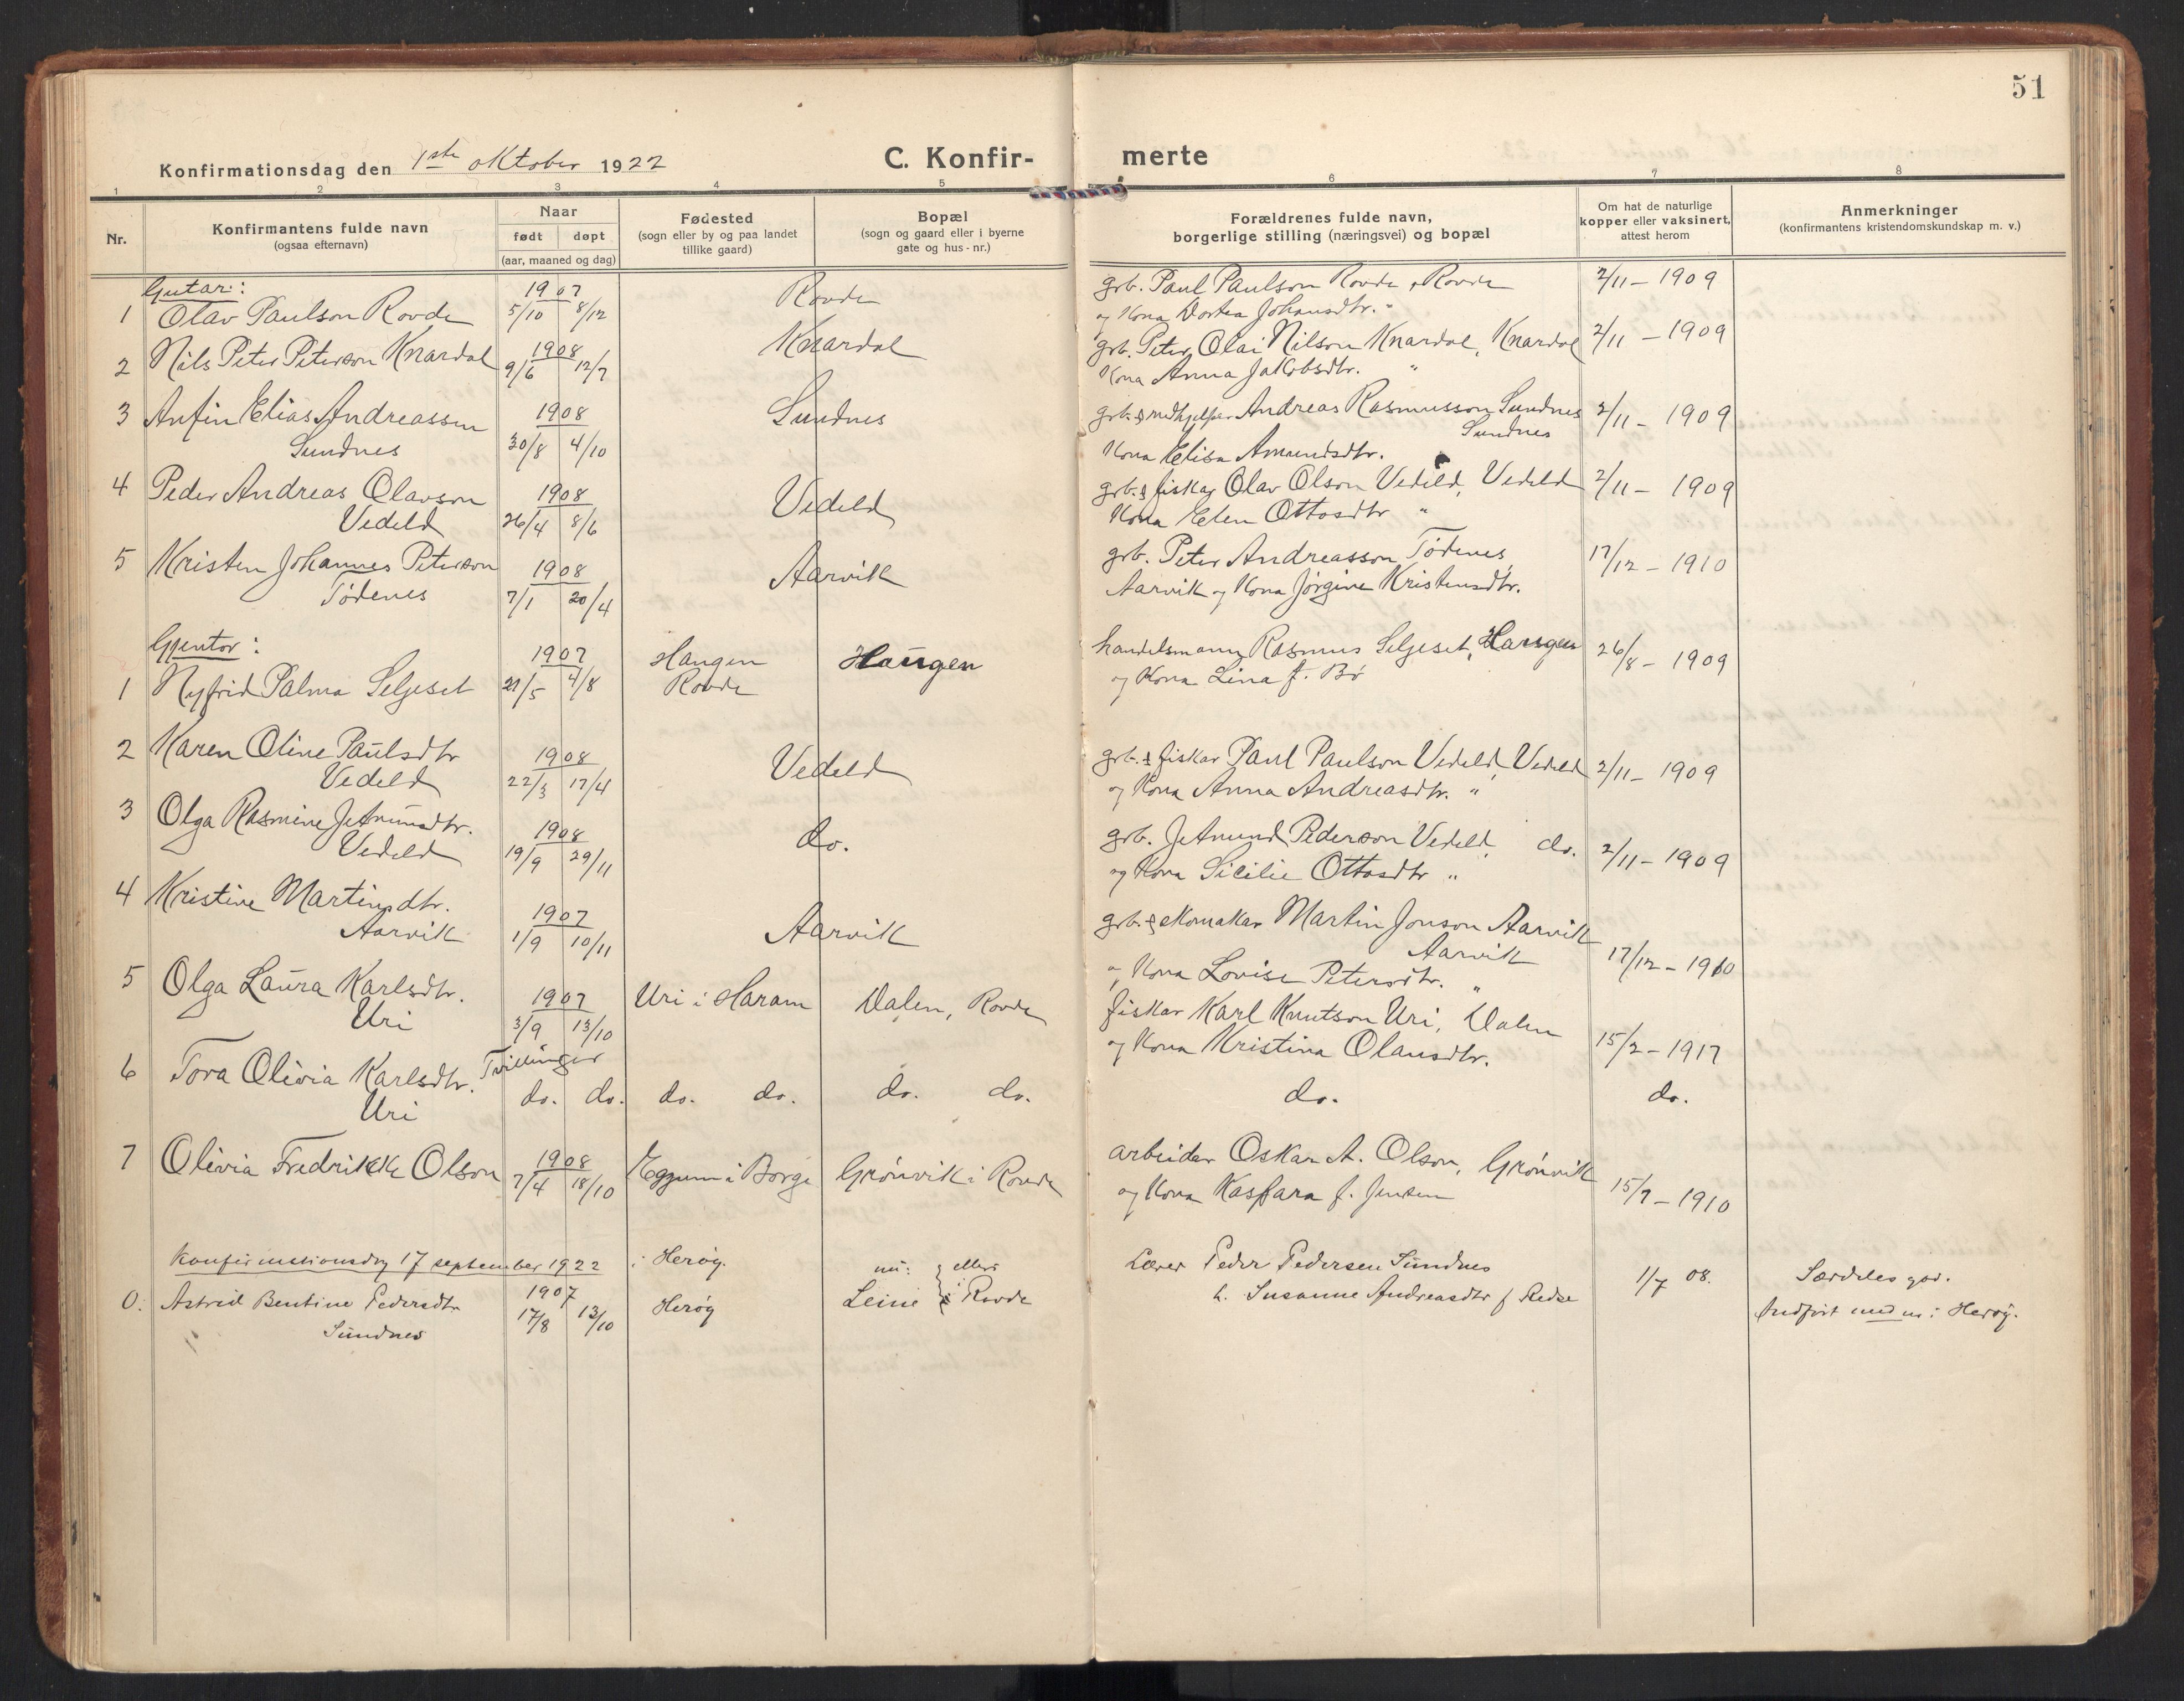 51
Konfirmationsdag den 1ste oktober 1922
C. Konfir- merte
1 2 3 4 5 6 7 8
Nr.
Konfirmantens fulde navn
(ogsaa efternavn)
Naar
født døpt
(aar, maaned og dag)
Fødested
(sogn eller by og paa landet
tillike gaard)
Bopæl
(sogn og gaard eller i byerne
gate og hus - nr.)
Forældrenes fulde navn,
borgerlige stilling (næringsvei) og bopæl
Om hat de naturlige
kopper eller vaksinert,
attest herom
Anmerkninger
(konfirmantens kristendomskundskap m. v.)
Gutar:
1 Olav Paulson Rovde 1907 5/10 8/12 Rovde grb. Paul Paulson Rovde, Rovde 2/11 - 1909
og Kona Dortea Johansdtr. "
2 Nils Peter Peterson Knardal 1908 9/6 12/7 Knardal grb. Peter Olai Nilson Knardal, Knardal 2/11 - 1909
Kona Anna Jakobsdtr. "
3 Anfin Elias Andreassen 1908 Sundnes grb. & medhjelper Andreas Rasmusson Sundnes 2/11 - 1909
Sundnes 30/8 4/10 Sundnes
Kona Elisa Amundsdtr.
4 Peder Andreas Olavson 1908 Vedeld grb. & fiskar Olav Olson Vedeld, Vedeld 2/11 - 1909
Vedeld 26/4 8/6 Kona Elen Ottosdtr "
5 Kristen Johannes Peterson 1908 Aarvik grb. Peter Andreasson Tødenes, 17/12 - 1910
Tødenes 7/1 20/4 Aarvik og Kona Jørgine Kristensdtr.
Gjentor:
1 Nyfrid Palma Seljeset 1907 21/5 4/8 Haugen Haugen handelsmann Rasmus Seljeset, Haugen 26/8 - 1909
Rovde og Kona Lina f. Bø
2 Karen Oline Paulsdtr 1908 Vedeld grb. & fiskar Paul Paulson Vedeld, Vedeld 2/11 - 1909
Vedeld 22/3 17/4 og Kona Anna Andreasdtr. "
3 Olga Rasmine Jetmundtr. 1908 do. grb. Jetmund Pederson Vedeld, do. 2/11 - 1909
Vedeld 19/9 29/11 og Kona Sicilie Ottosdtr "
4 Kristine Martinsdtr. 1907 Aarvik grb. & skomakar Martin Jonson Aarvik 17/12 - 1910
Aarvik 1/9 10/11 Aarvik
og Kona Lovise Petersdtr. "
5 Olga Laura Karlsdtr. 1907 Uri i Haram Dalen, Rovde fiskar Karl Knutson Uri, Dalen 15/2 - 1917
Uri 3/9 13/10 og Kona Kristina Olausdtr.
Tvillinger
6 Tora Olivia Karlsdtr. do. do. do. do. do. do. do. do.
Uri
7 Olivia Fredrikke Olson 1908 7/4 18/10 Eggum i Borge Grønvik i Rovde arbeidar Oskar A. Olson, Grønvik 15/7 - 1910
og Kona Kaspara f. Jensen
Konfirmationsdag 17 september 1922 i Herøy.
0. Astrid Bentine Pedersdtr 1907 17/8 13/10 Herøy nu: Leine ellers i Rovde Lærer Peder Pedersen Sundnes 1/7 08. Særdeles god.
Sundnes h. Susanne Andreasdtr f Redse Indført med nr i Herøy.